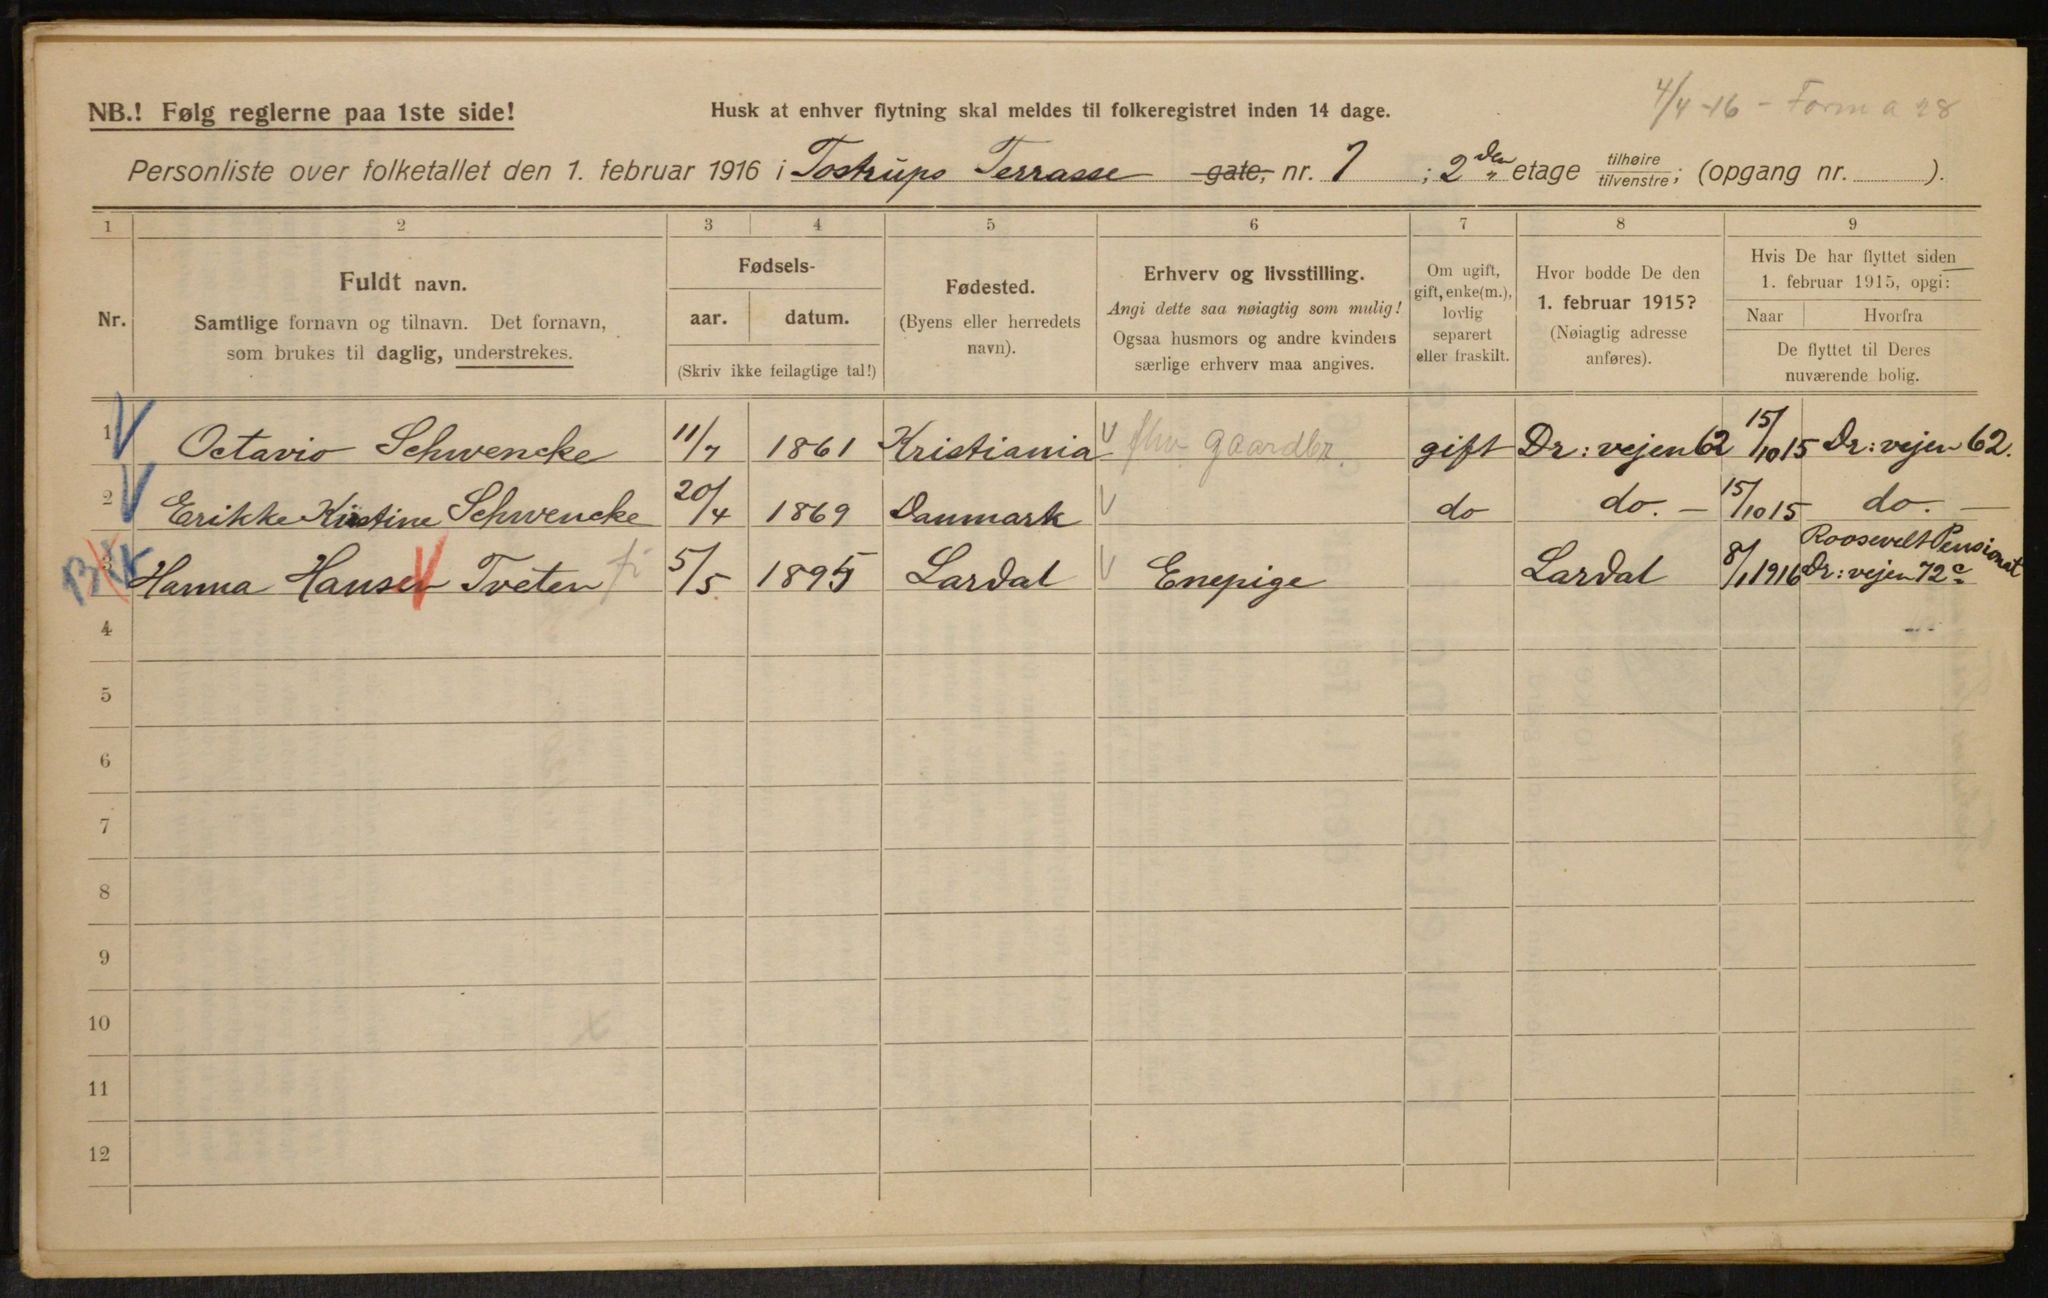 4/4-16 - Form a 28
NB.! Følg reglerne paa 1ste side! Husk at enhver flytning skal meldes til folkeregistret inden 14 dage.
Personliste over folketallet den 1. februar 1916 i Tostrups Terrasse gate, nr. 7 ; 2den etage tilhøire tilvenstre; (opgang nr. ).
1 2 3 4 5 6 7 8 9
Nr.
Fuldt navn.
Samtlige fornavn og tilnavn. Det fornavn,
som brukes til daglig, understrekes.
Fødsels-
aar. datum.
(Skriv ikke feilagtige tal!)
Fødested.
(Byens eller herredets
navn).
Erhverv og livsstilling.
Angi dette saa nøiagtig som mulig!
Ogsaa husmors og andre kvinders
særlige erhverv maa angives.
Om ugift,
gift, enke(m.),
lovlig
separert
eller fraskilt.
Hvor bodde De den
1. februar 1915?
(Nøiagtig adresse
anføres).
Hvis De har flyttet siden
1. februar 1915, opgi:
Naar Hvorfra
De flyttet til Deres
nuværende bolig.
1 Octavio Schwencke 11/7 1861 Kristiania fhv. gaardbr. gift Dr: vejen 62 15/10 15 Dr: vejen 62.
2 Erikke Kirstine Schwencke 20/4 1869 Danmark do do. — 15/10 15 do. —
3 Hanna Hansen Tveten 5/5 1895 Lardal Enepige Lardal 8/1 1916 Roosevelt Pensionat
Dr: vejen 72c
4
5
6
7
8
9
10
11
12